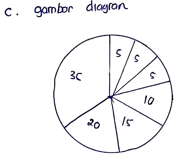 c. gambar diagram
5
5
5
10
15
20
35